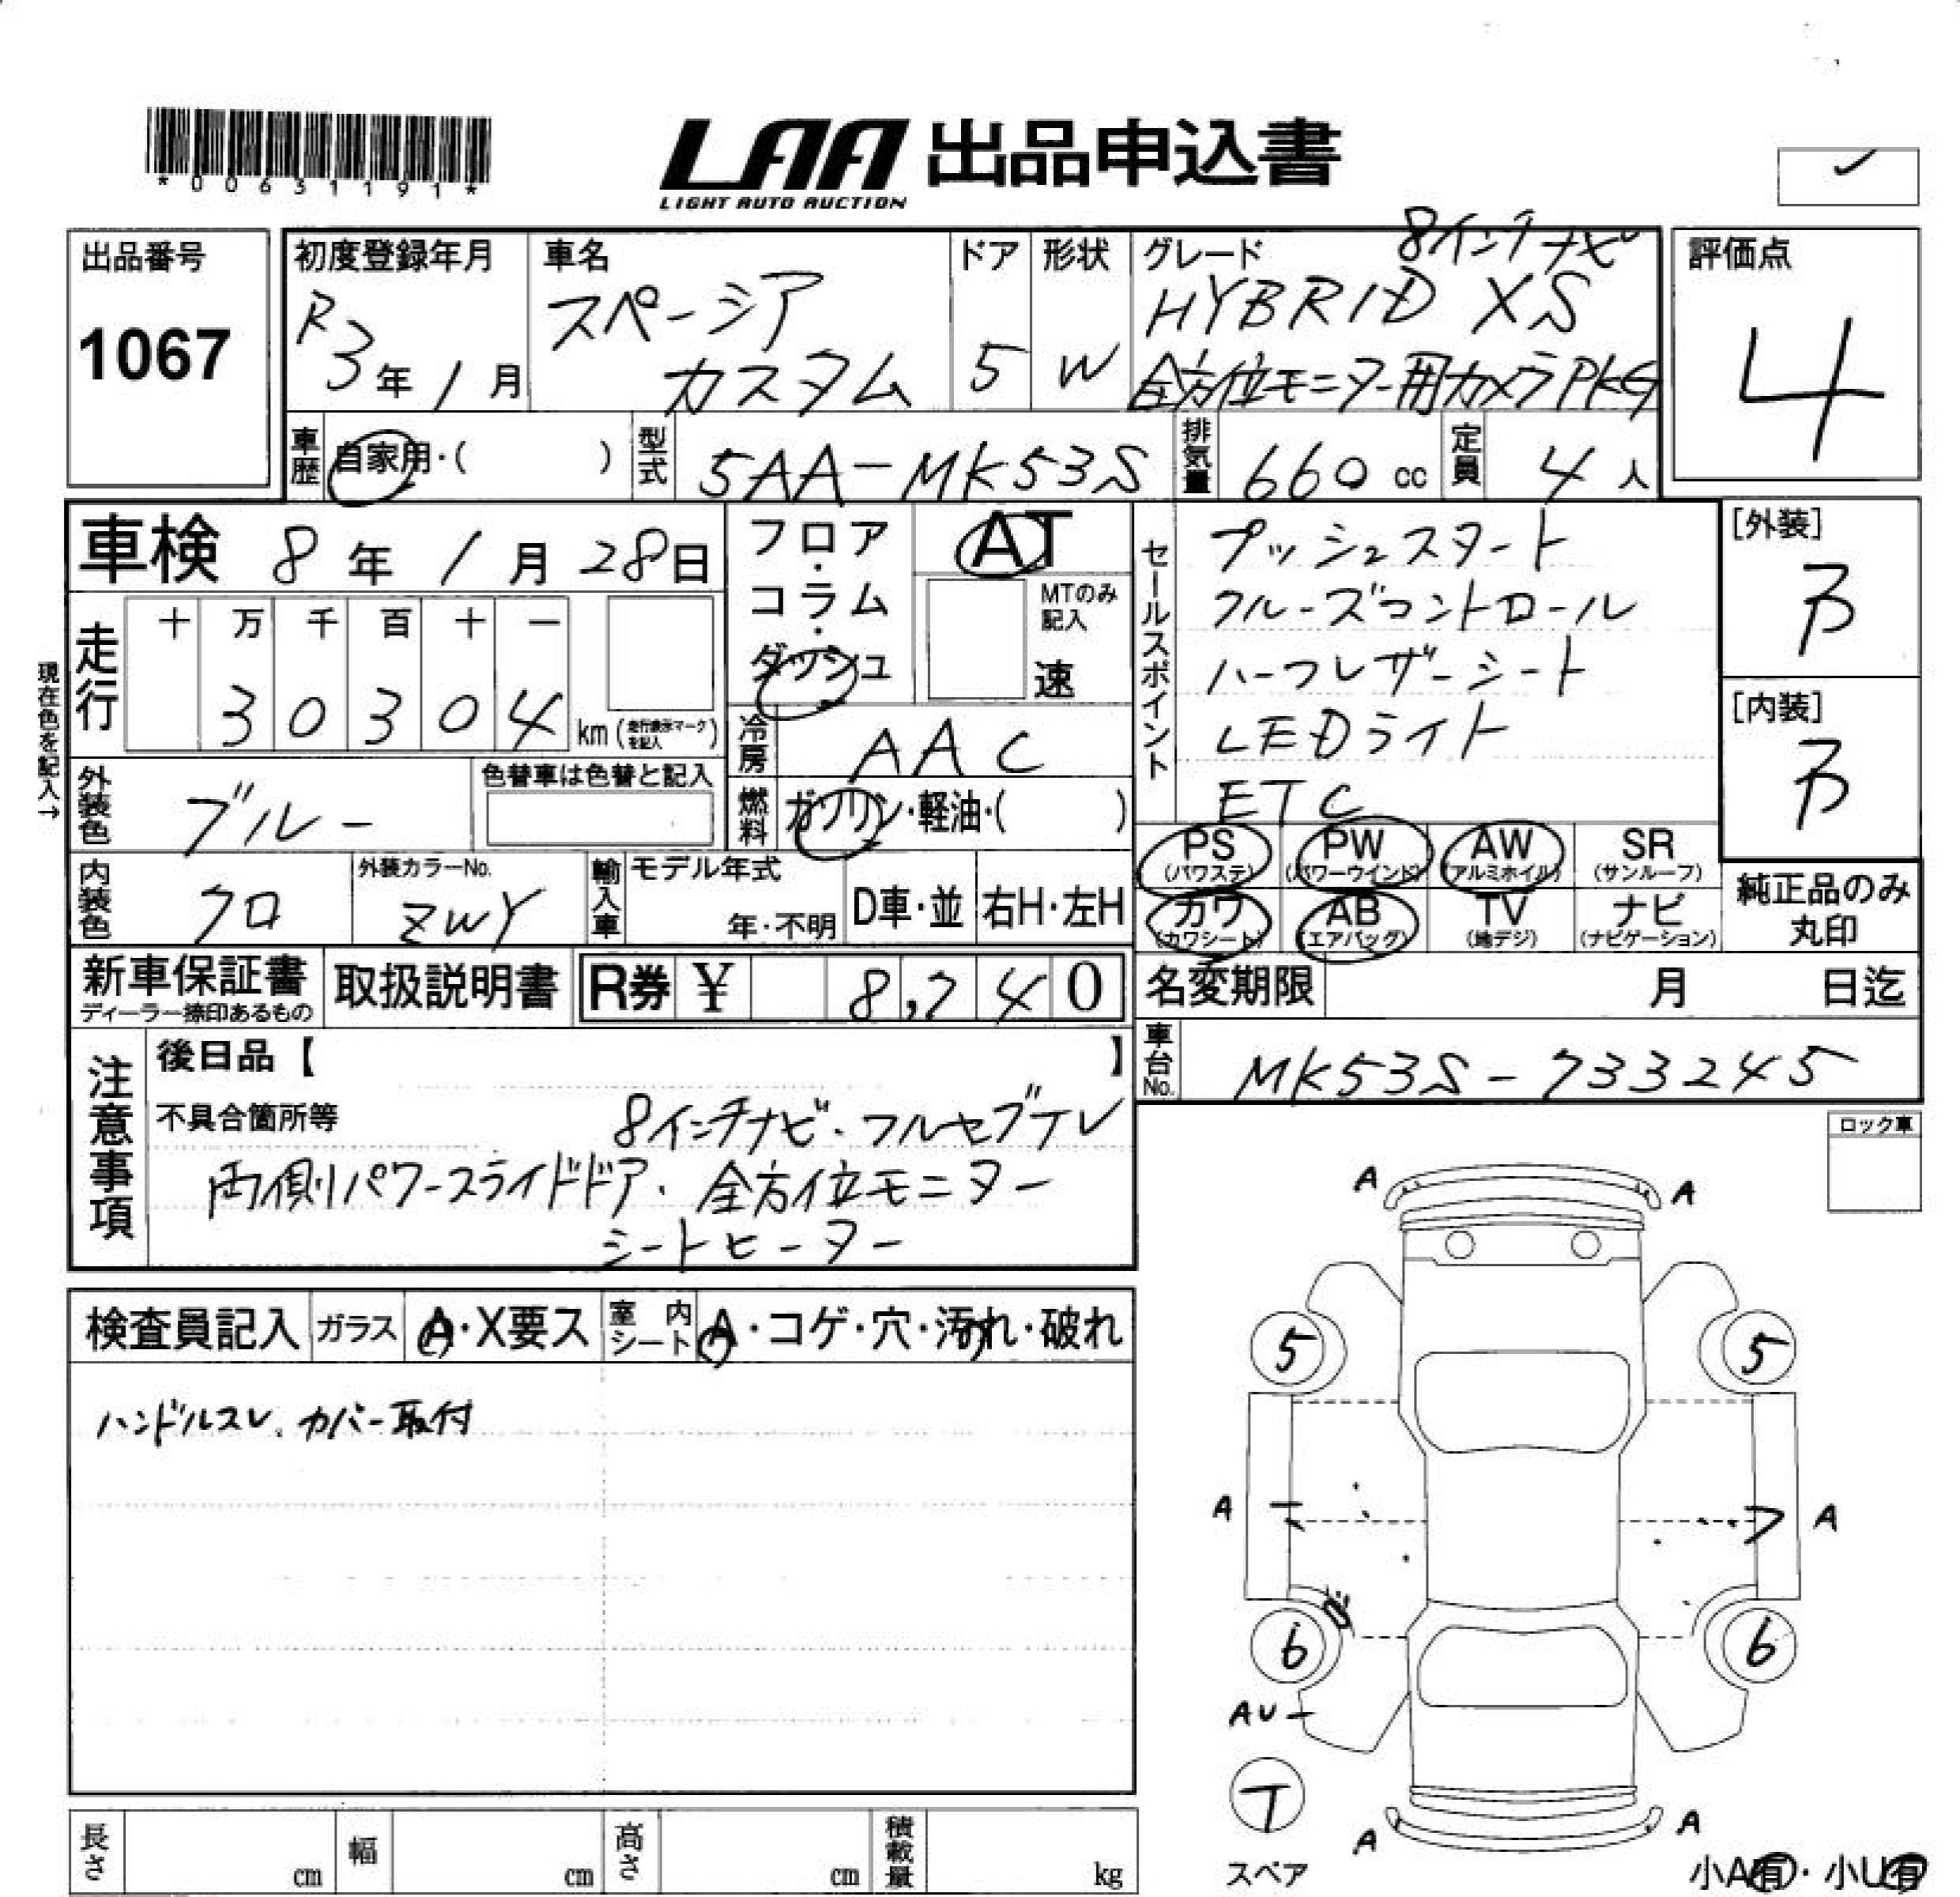 *00631191*
LAA 出品申込書
LIGHT AUTO AUCTION
出品番号
1067
初度登録年月
R3年1月
車名
スペーシア
カスタム
ドア
5
形状
W
グレード
8インチナビ
HYBRID XS
全方位モニター用カメラPKG
評価点
4
車歴
自家用・( )
型式
5AA-MK53S
排気量
660cc
定員
4人
車検 8年1月28日
走行
十 万 千 百 十 一
3 0 3 0 4
km(走行表示マークを記入)
現在色を記入→
フロア・コラム・ダッシュ
AT
MTのみ記入
速
冷房
AAC
燃料
ガソリン・軽油・( )
セールスポイント
プッシュスタート
クルーズコントロール
ハーフレザーシート
LEDライト
ETC
[外装]
B
[内装]
B
外装色
ブルー
色替車は色替と記入
内装色
クロ
外装カラーNo.
ZWY
輸入車
モデル年式
年・不明
D車・並
右H・左H
PS
(パワステ)
PW
(パワーウインド)
AW
(アルミホイル)
SR
(サンルーフ)
カワ
(カワシート)
AB
(エアバッグ)
TV
(地デジ)
ナビ
(ナビゲーション)
純正品のみ
丸印
新車保証書
ディーラー捺印あるもの
取扱説明書
R券 ¥ 8,240
名変期限 月 日迄
車台No.
MK53S-733245
注意事項
後日品【 】
不具合箇所等
8インチナビ・フルセグテレ
両側パワースライドドア・全方位モニター
シートヒーター
ロック車
検査員記入
ガラス
A・X要ス
室内シート
A・コゲ・穴・汚れ・破れ
ハンドルスレ、カバー取付
A
A
5
5
A
A
6
6
AU
T
スペア
A
A
小A有・小U有
長さ cm
幅 cm
高さ cm
積載量 kg